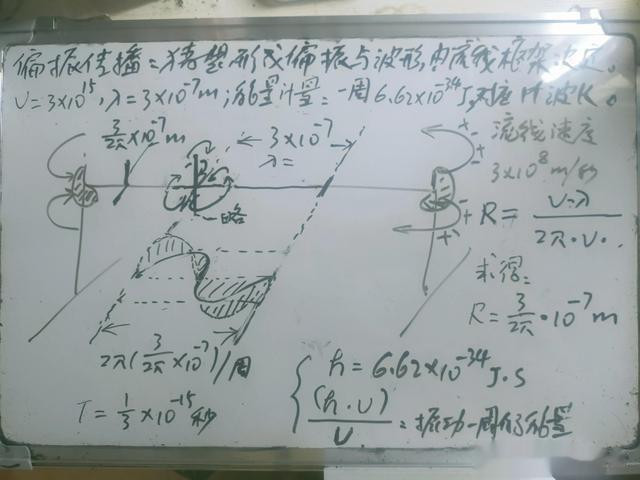 偏振传播:猜塑形成偏振与波形由流线框架决定。
υ=3×10¹⁵,λ=3×10⁻⁷m;能量计量:一周6.62×10⁻³⁴J,对应1个波长。
3/2π×10⁻⁷m
3×10⁻⁷
λ=
略
流线速度
3×10⁸m/秒
R=υ·λ/2π·υ.
求得:
R=3/2π·10⁻⁷m
2π(3/2π×10⁻⁷)/周
T=1/3×10⁻¹⁵秒
h=6.62×10⁻³⁴J·S
(h·υ)/υ=振动一周的能量